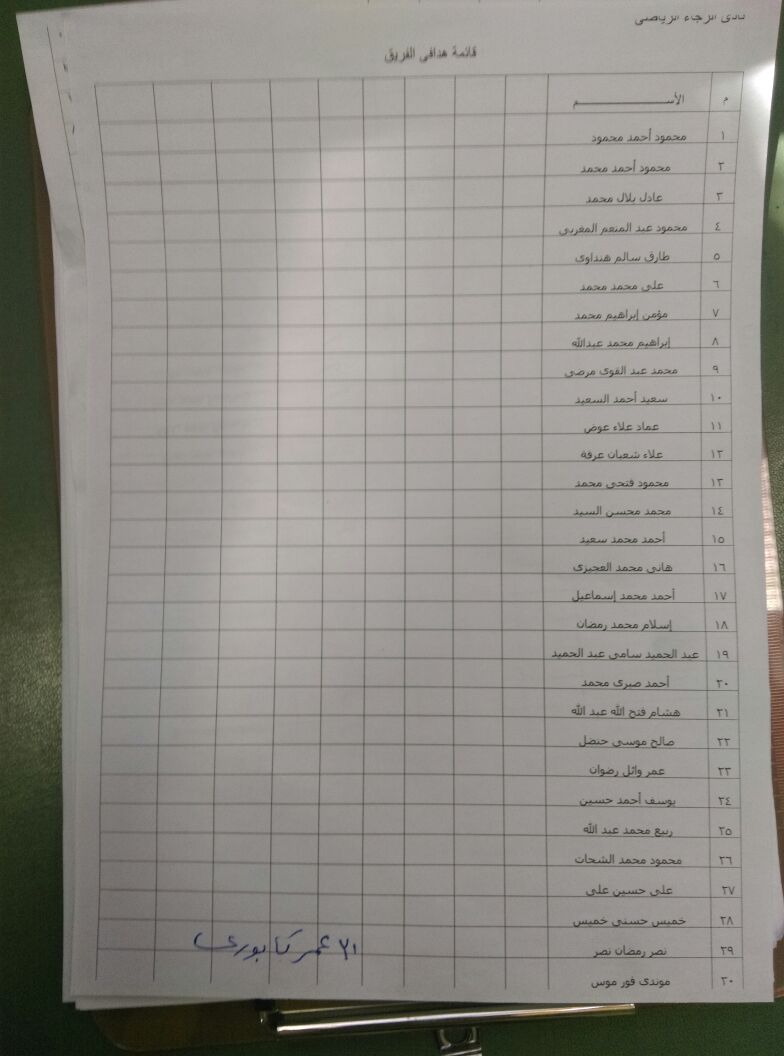 نادى الرجاء الرياضى
قائمة هدافى الفريق
م الأســـــــــــم
١ محمود أحمد محمود
٢ محمود أحمد محمد
٣ عادل بلال محمد
٤ محمود عبد المنعم المغربى
٥ طارق سالم هنداوى
٦ على محمد محمد
٧ مؤمن إبراهيم محمد
٨ إبراهيم محمد عبدالله
٩ محمد عبد القوى مرضى
١٠ سعيد أحمد السعيد
١١ عماد علاء عوض
١٢ علاء شعبان عرفة
١٣ محمود فتحى محمد
١٤ محمد محسن السيد
١٥ أحمد محمد سعيد
١٦ هانى محمد العجيزى
١٧ أحمد محمد إسماعيل
١٨ إسلام محمد رمضان
١٩ عبد الحميد سامى عبد الحميد
٢٠ أحمد صبرى محمد
٢١ هشام فتح الله عبد الله
٢٢ صالح موسى حنضل
٢٣ عمر وائل رضوان
٢٤ يوسف أحمد حسين
٢٥ ربيع محمد عبد الله
٢٦ محمود محمد الشحات
٢٧ على حسين على
٢٨ خميس حسنى خميس
٢٩ نصر رمضان نصر
٣٠ موندى فور موس
٣١ عمر كابورى